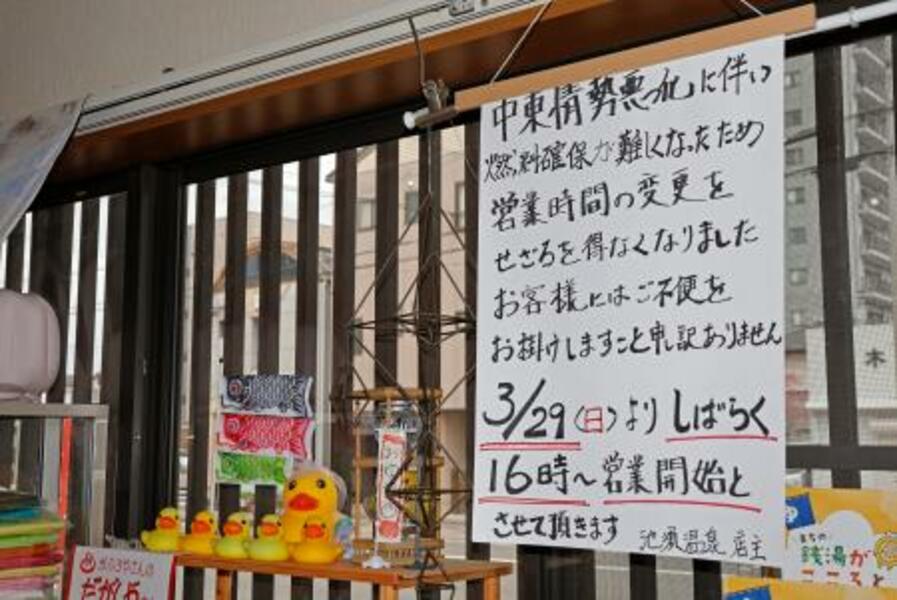 中東情勢悪化に伴い
燃料確保が難しくなったため
営業時間の変更を
せざるを得なくなりました
お客様にはご不便を
お掛けしますこと申し訳ありません
3/29(日)よりしばらく
16時〜営業開始と
させて頂きます
池須温泉 店主
木
まちの
銭湯が
こころと
おふろやさんの